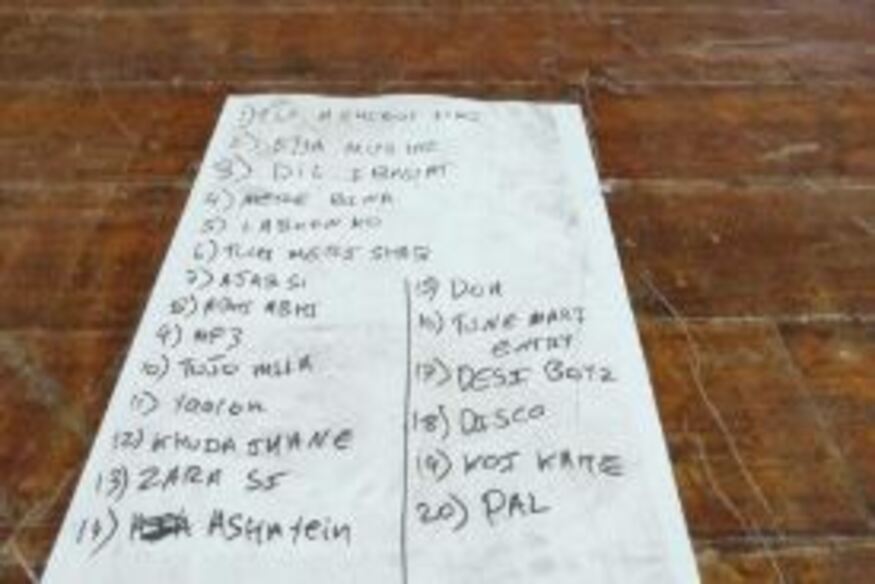 3) DIL IBADAT
4) MERE BINA
5) LABHON KO
6) TUM MERE
7) AJAB SI
8) ABHI ABHI
9) MP3
10) TUJO MILA
11) Yaaron
12) KHUDA JHANE
13) ZARA SI
14) ASHAtein
15) DUA
16) TUNE MARI
ENTRY
17) DESI BOYZ
18) DISCO
19) KOI KAHE
20) PAL